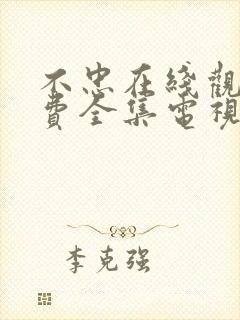 不忠在綫觀
費全集電視
李克强